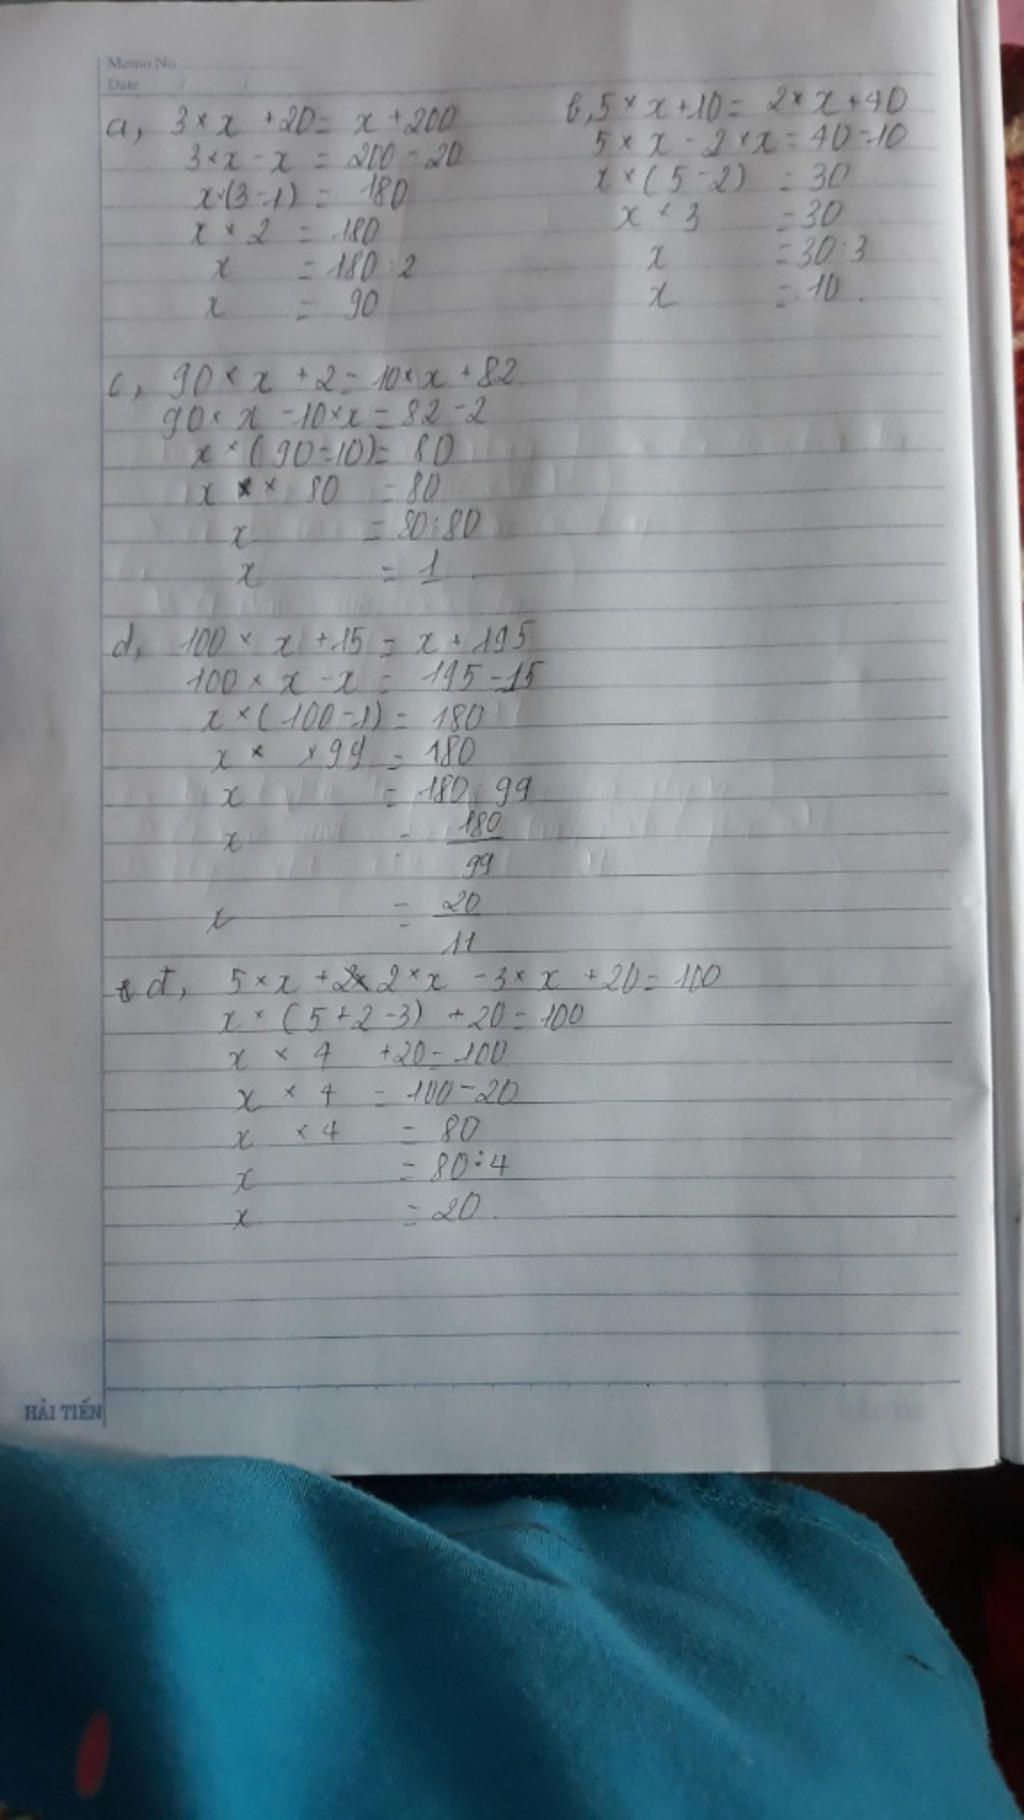 Memo No.
Date / /
a, 3 × x + 20 = x + 200
3 × x - x = 200 - 20
x × (3 - 1) = 180
x × 2 = 180
x = 180 : 2
x = 90
b, 5 × x + 10 = 2 × x + 40
5 × x - 2 × x = 40 - 10
x × (5 - 2) = 30
x × 3 = 30
x = 30 : 3
x = 10.
c, 90 × x + 2 = 10 × x + 82
90 × x - 10 × x = 82 - 2
x × (90 - 10) = 80
x × 80 = 80
x = 80 : 80
x = 1
d, 100 × x + 15 = x + 195
100 × x - x = 195 - 15
x × (100 - 1) = 180
x × × 99 = 180
x = 180 : 99
x = 180/99
x = 20/11
đ, 5 × x + 2 × x - 3 × x + 20 = 100
x × (5 + 2 - 3) + 20 = 100
x × 4 + 20 = 100
x × 4 = 100 - 20
x × 4 = 80
x = 80 : 4
x = 20.
HẢI TIẾN